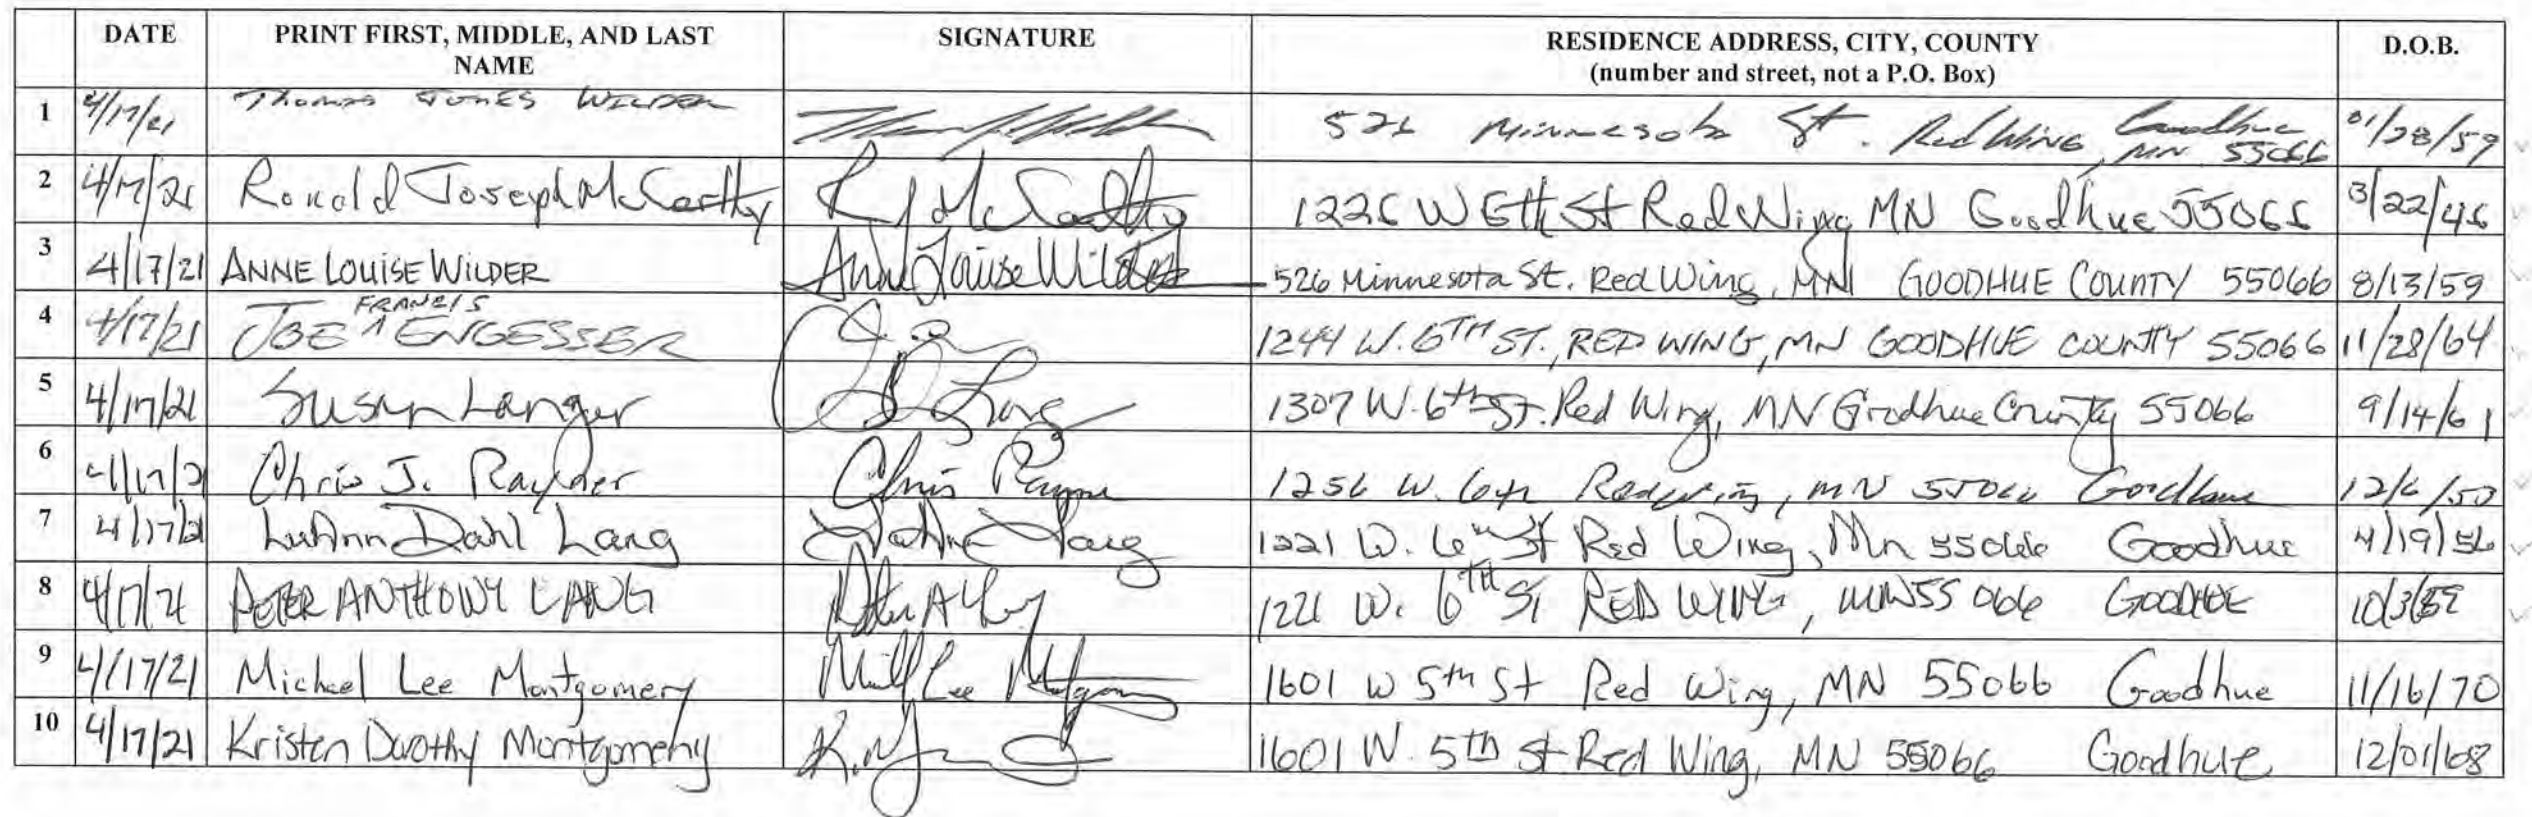 DATE PRINT FIRST, MIDDLE, AND LAST NAME SIGNATURE RESIDENCE ADDRESS, CITY, COUNTY (number and street, not a P.O. Box) D.O.B.
1 4/17/21 Thomas JONES WILDER 526 Minnesota St. Red Wing, Goodhue MN 55066 01/28/59
2 4/17/21 Ronald Joseph McCarthy R J McCarthy 1226 W 6th St Red Wing MN Goodhue 55066 3/22/46
3 4/17/21 ANNE LOUISE WILDER Anne Louise Wilder 526 Minnesota St. Red Wing, MN GOODHUE COUNTY 55066 8/13/59
4 4/17/21 JOE ^ FRANCIS ENGESSER 1244 W. 6TH ST., RED WING, MN GOODHUE COUNTY 55066 11/28/64
5 4/17/21 Susan Langer 1307 W. 6th St. Red Wing, MN Goodhue County 55066 9/14/61
6 4/17/21 Chris J. Chris 1256 W. 6th Red Wing, MN 55066 Goodhue 12/6/50
7 4/17/21 LuAnn Dahl Lang LuAnn Lang 1221 W. 6th St Red Wing, Mn 55066 Goodhue 4/19/56
8 4/17/21 PETER ANTHONY LANG Peter A 1221 W. 6TH ST RED WING, MN 55066 GOODHUE 10/3/59
9 4/17/21 Michael Lee Montgomery Lee Montgomery 1601 W 5th St Red Wing, MN 55066 Goodhue 11/16/70
10 4/17/21 Kristen Dorothy Montgomery 1601 W. 5th St Red Wing, MN 55066 Goodhue 12/01/68